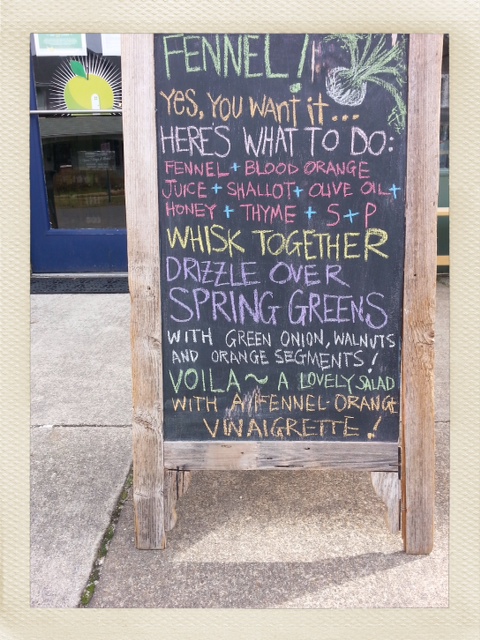 FENNEL!
YES, YOU WANT IT...
HERE'S WHAT TO DO:
FENNEL + BLOOD ORANGE
JUICE + SHALLOT + OLIVE OIL +
HONEY + THYME + S+P
WHISK TOGETHER
DRIZZLE OVER
SPRING GREENS
WITH GREEN ONION, WALNUTS
AND ORANGE SEGMENTS!
VOILA~ A LOVELY SALAD
WITH A FENNEL-ORANGE
VINAIGRETTE!